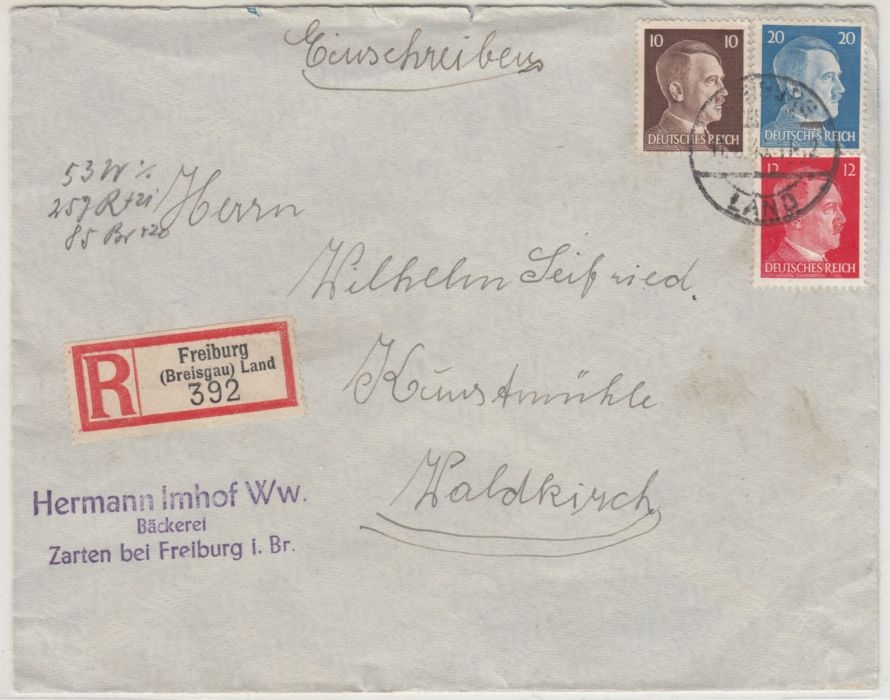 Einschreiben
10 10
DEUTSCHES REICH
20 20
DEUTSCHES REICH
12 12
DEUTSCHES REICH
LAND
53 W
257 R
85 Br
Herrn
Wilhelm Seifried.
Kunstmühle
Waldkirch
R
Freiburg
(Breisgau) Land
392
Hermann Imhof Ww.
Bäckerei
Zarten bei Freiburg i. Br.